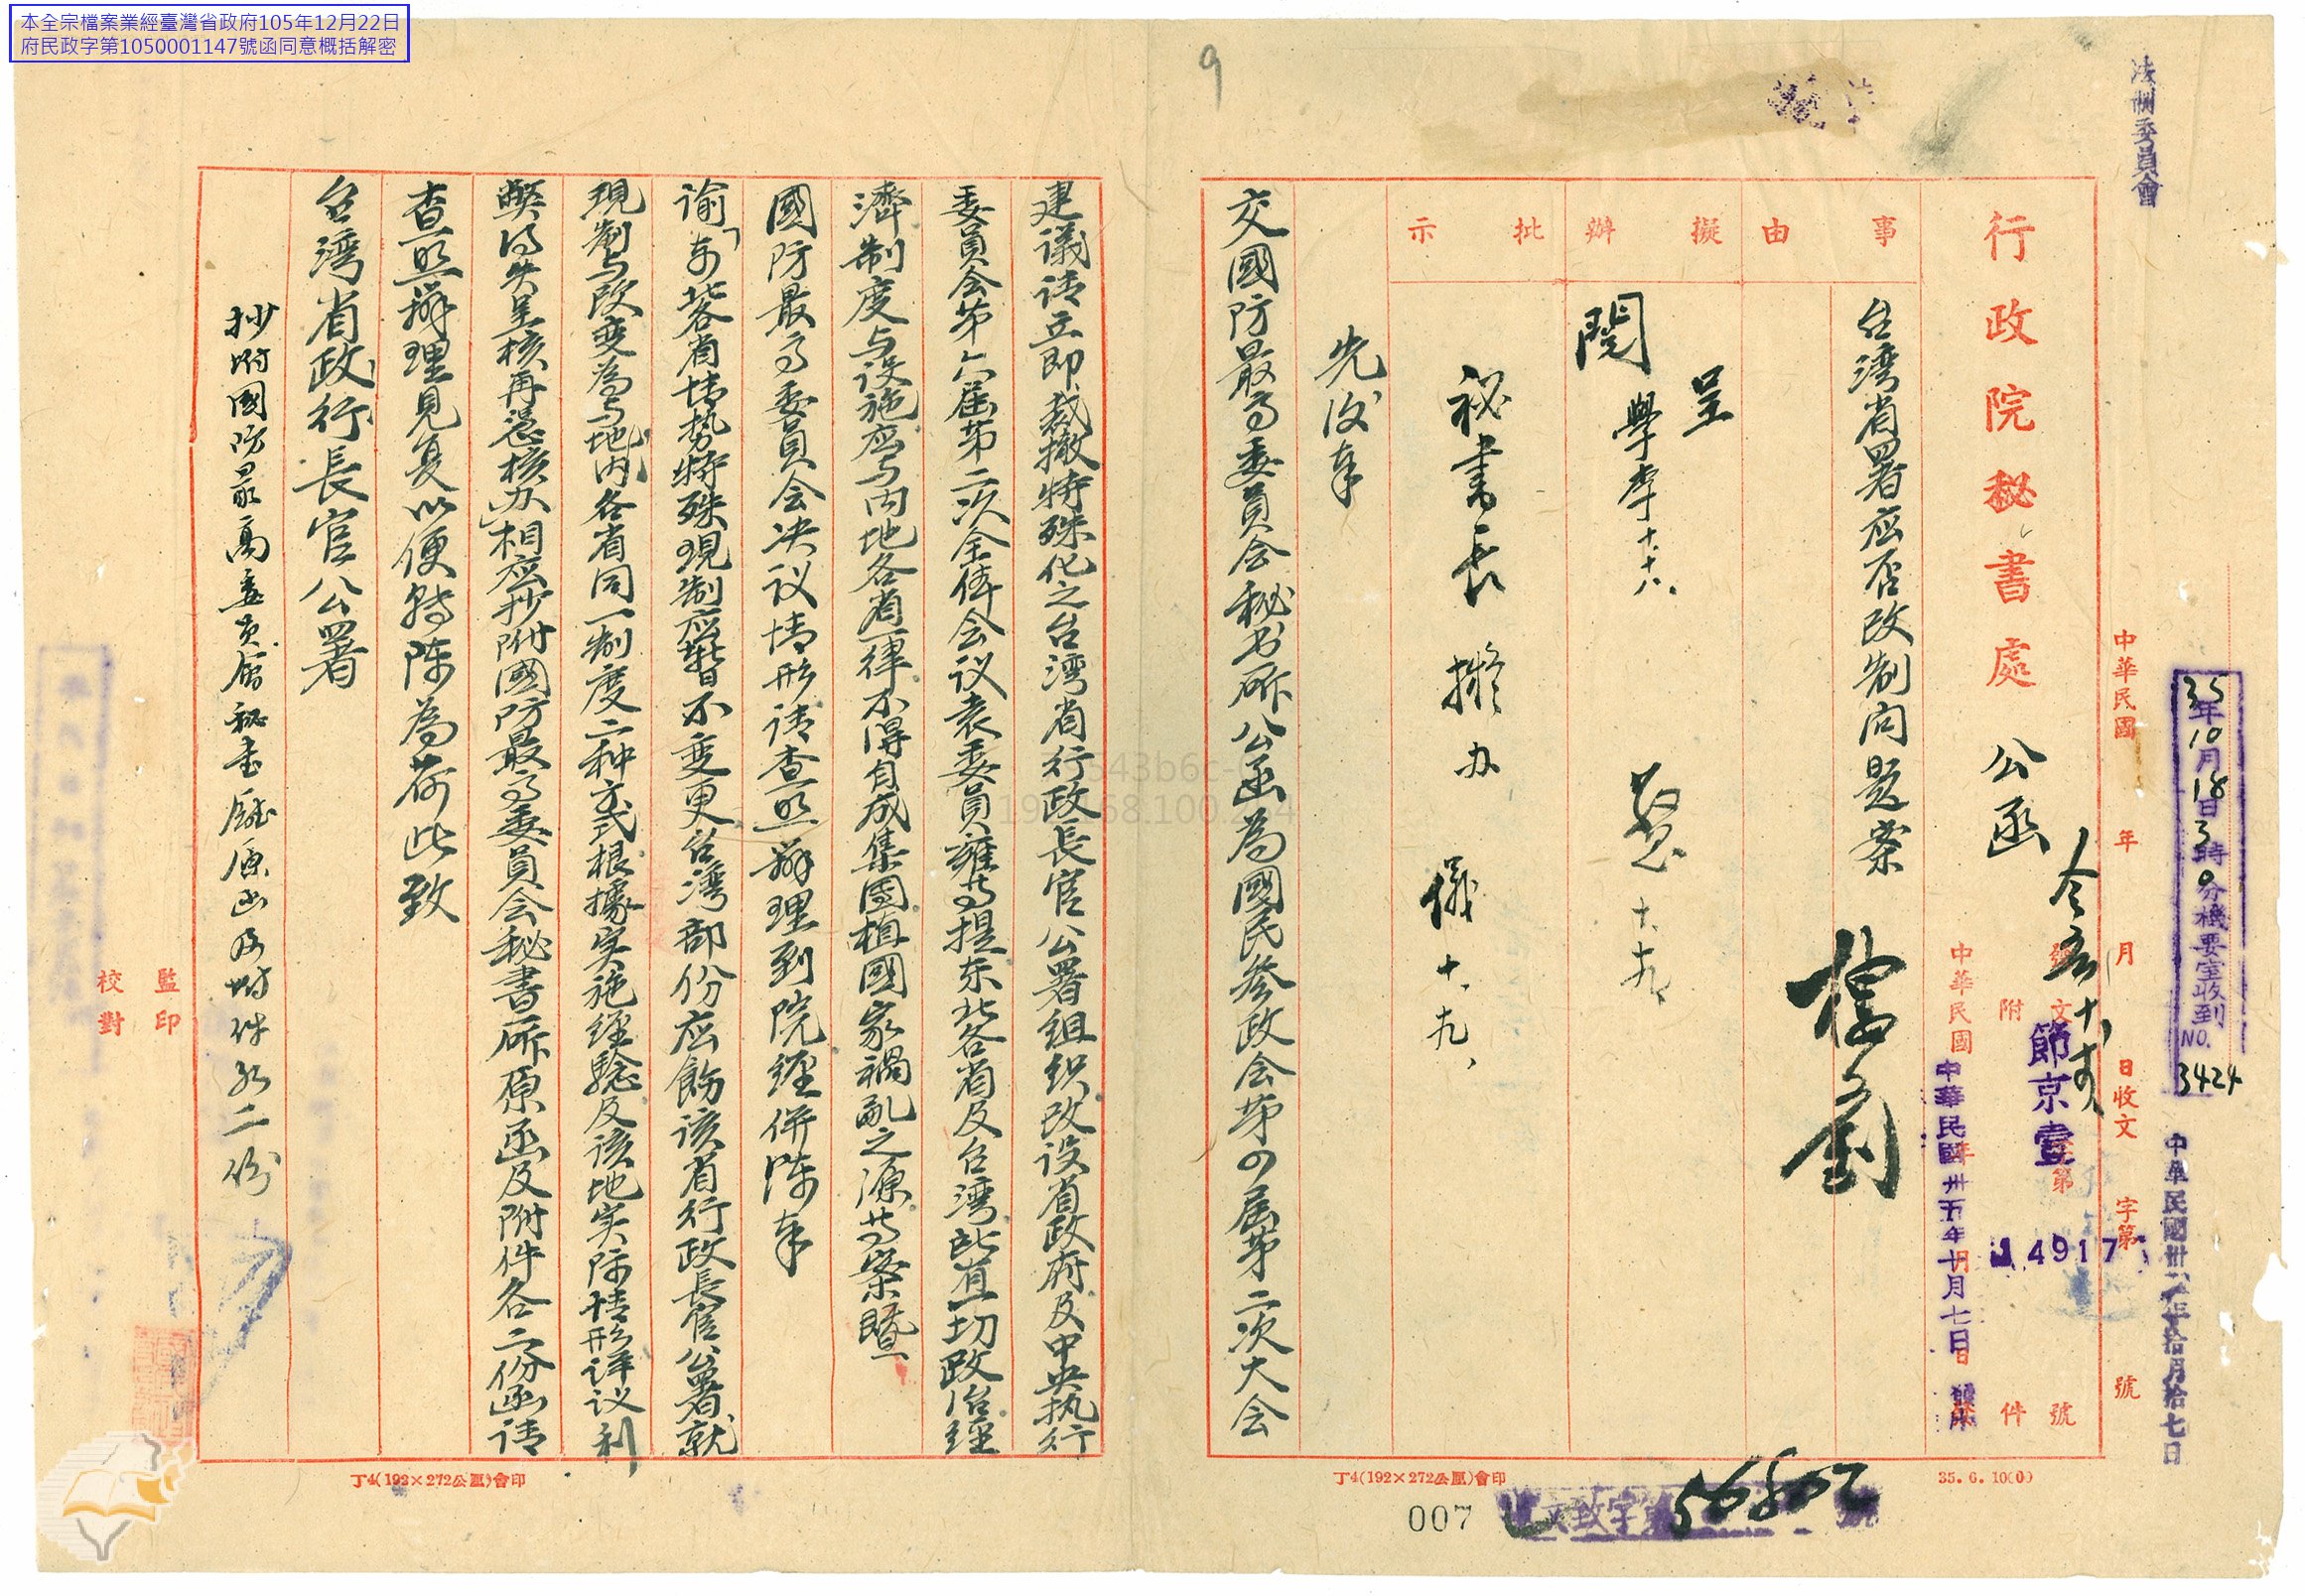 本全宗檔案業經臺灣省政府105年12月22日
府民政字第1050001147號函同意概括解密
9
法制委員會
35年10月18日3時0分機要室收到
NO. 3424
中華民國 年 月 日收文 字第 號
行政院秘書處 公函
節京壹 字第 14917 號
附 件
中華民國卅五年十月七日
事由
台湾省署应否改制问题案
擬辦
呈
閱
學李 十.十八.
十.十九
批示
秘書長擬办 儀 十.十九.
先后奉
交國防最高委員会秘书厅公函為國民参政会第四届第二次大会
建議请立即裁撤特殊化之台湾省行政長官公署组织改设省政府及中央执行
委員会第六届第二次全体会议袁委員雍等提东北各省及台湾此项一切政治經
濟制度与设施应与内地各省一律不得自成集團植國家禍乱之源等案暨
國防最高委員会决议情形请查照辦理到院經併陈奉
谕「东北各省情势特殊現制应暂不变更台湾部份应飭该省行政長官公署就
現制与改变為与地内各省同一制度二种方式根據实施经驗及该地实际情形详议利
弊得失呈核再憑核办」相应抄附國防最高委員会秘書厅原函及附件各二份函请
查照辦理見复以便轉陈為荷此致
台湾省政行長官公署
抄附國防最高委員會秘書廳原函及附件各二份
監印
校對
丁4(192×272公厘)會印
丁4(192×272公厘)會印
35. 6. 10000
007
56802